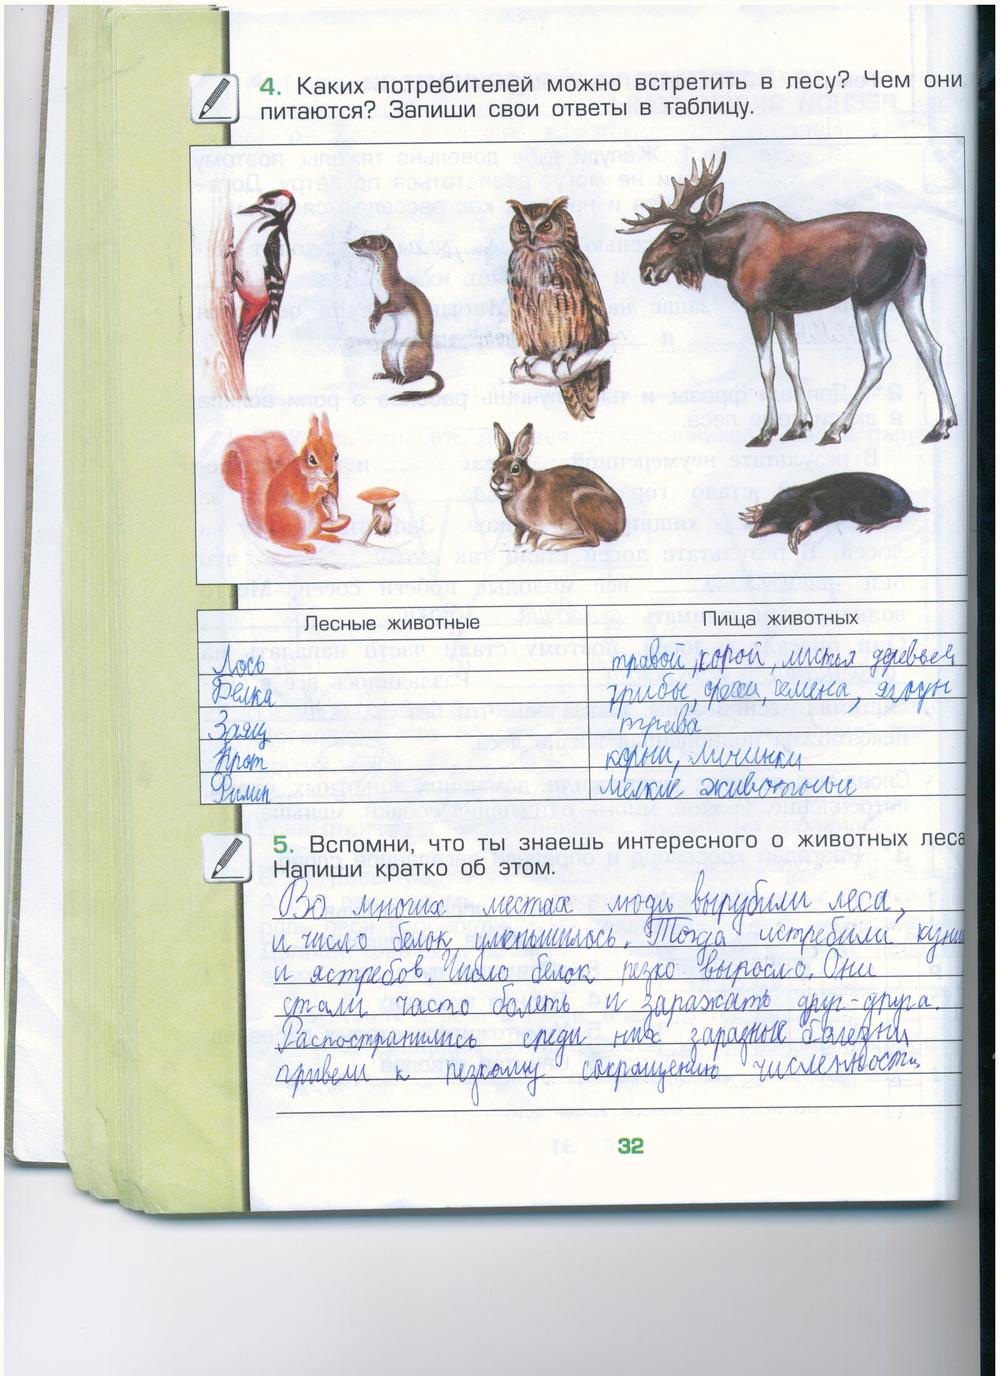 4. Каких потребителей можно встретить в лесу? Чем они
питаются? Запиши свои ответы в таблицу.
Лесные животные Пища животных
Лось травой, корой, листья деревьев
Белка грибы, орехи, семена, ягоды
Заяц трава
Крот корни, личинки
Филин мелкие животные
5. Вспомни, что ты знаешь интересного о животных леса
Напиши кратко об этом.
Во многих местах люди вырубили леса,
и число белок уменьшилось. Тогда истребили куниц
и ястребов. Число белок резко выросло. Они
стали часто болеть и заражать друг-друга.
Распостранились среди них заразные болезни
привели к резкому сокращению численности.
32